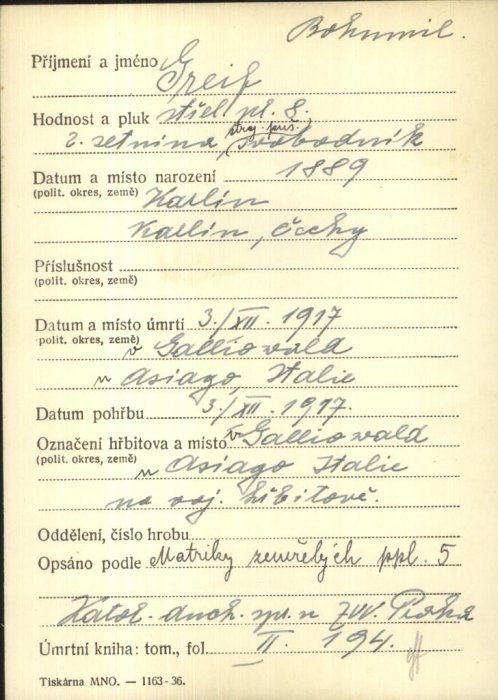 Bohumil.
Příjmení a jméno Greif
Hodnost a pluk střel. pl. 8.
2. setnina, svobodník
Datum a místo narození 1889
(polit. okres, země) Karlín
Karlín, Čechy
Příslušnost
(polit. okres, země)
Datum a místo úmrtí 3./XII. 1917
(polit. okres, země) v Galliowald
u Asiago, Italie
Datum pohřbu 3./XII. 1917.
Označení hřbitova a místo v Galliowald
(polit. okres, země) u Asiago Italie
na voj. hřbitově.
Oddělení, číslo hrobu
Opsáno podle Matriky zemřelých ppl. 5
Katol. duch. spr. u ZVV. Praha
Úmrtní kniha: tom., fol. II. 194.
Tiskárna MNO. — 1163-36.